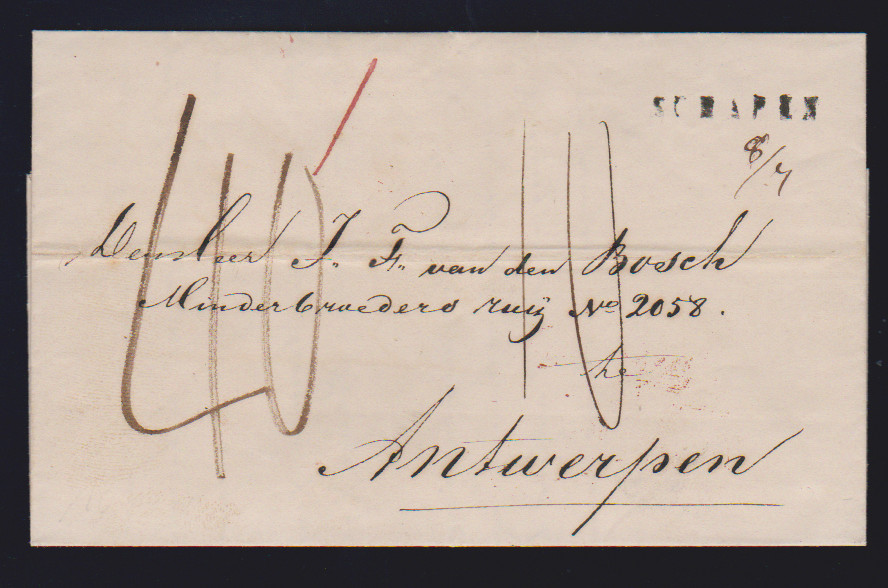 SCHAPEN
8/7
40 10
Den Heer J. F. van den Bosch
Minderbroeders ruij No 2058.
te
Antwerpen